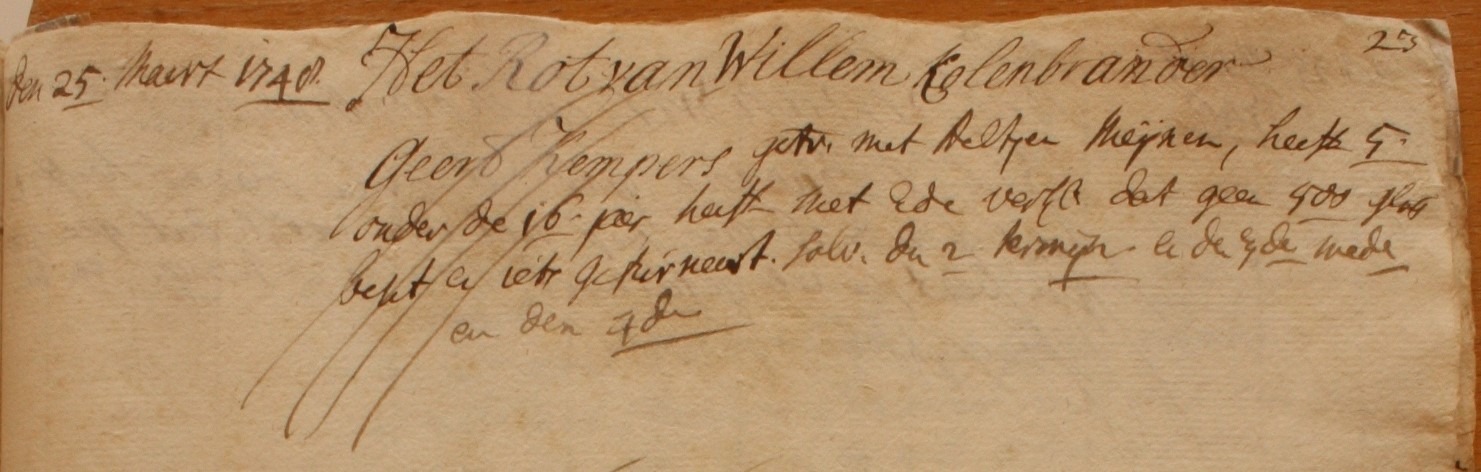 den 25 Maert 1748. Het Rot van Willem Kolenbrander 23
Geert Kempers getr. met Aeltjen Meijnen, heeft 5
onder de 16 jaer heeft met Ede verkl: dat geen 500 glds
besit en iets gefurneert. solv. den 2 termijn en de 3de mede
en den 4de